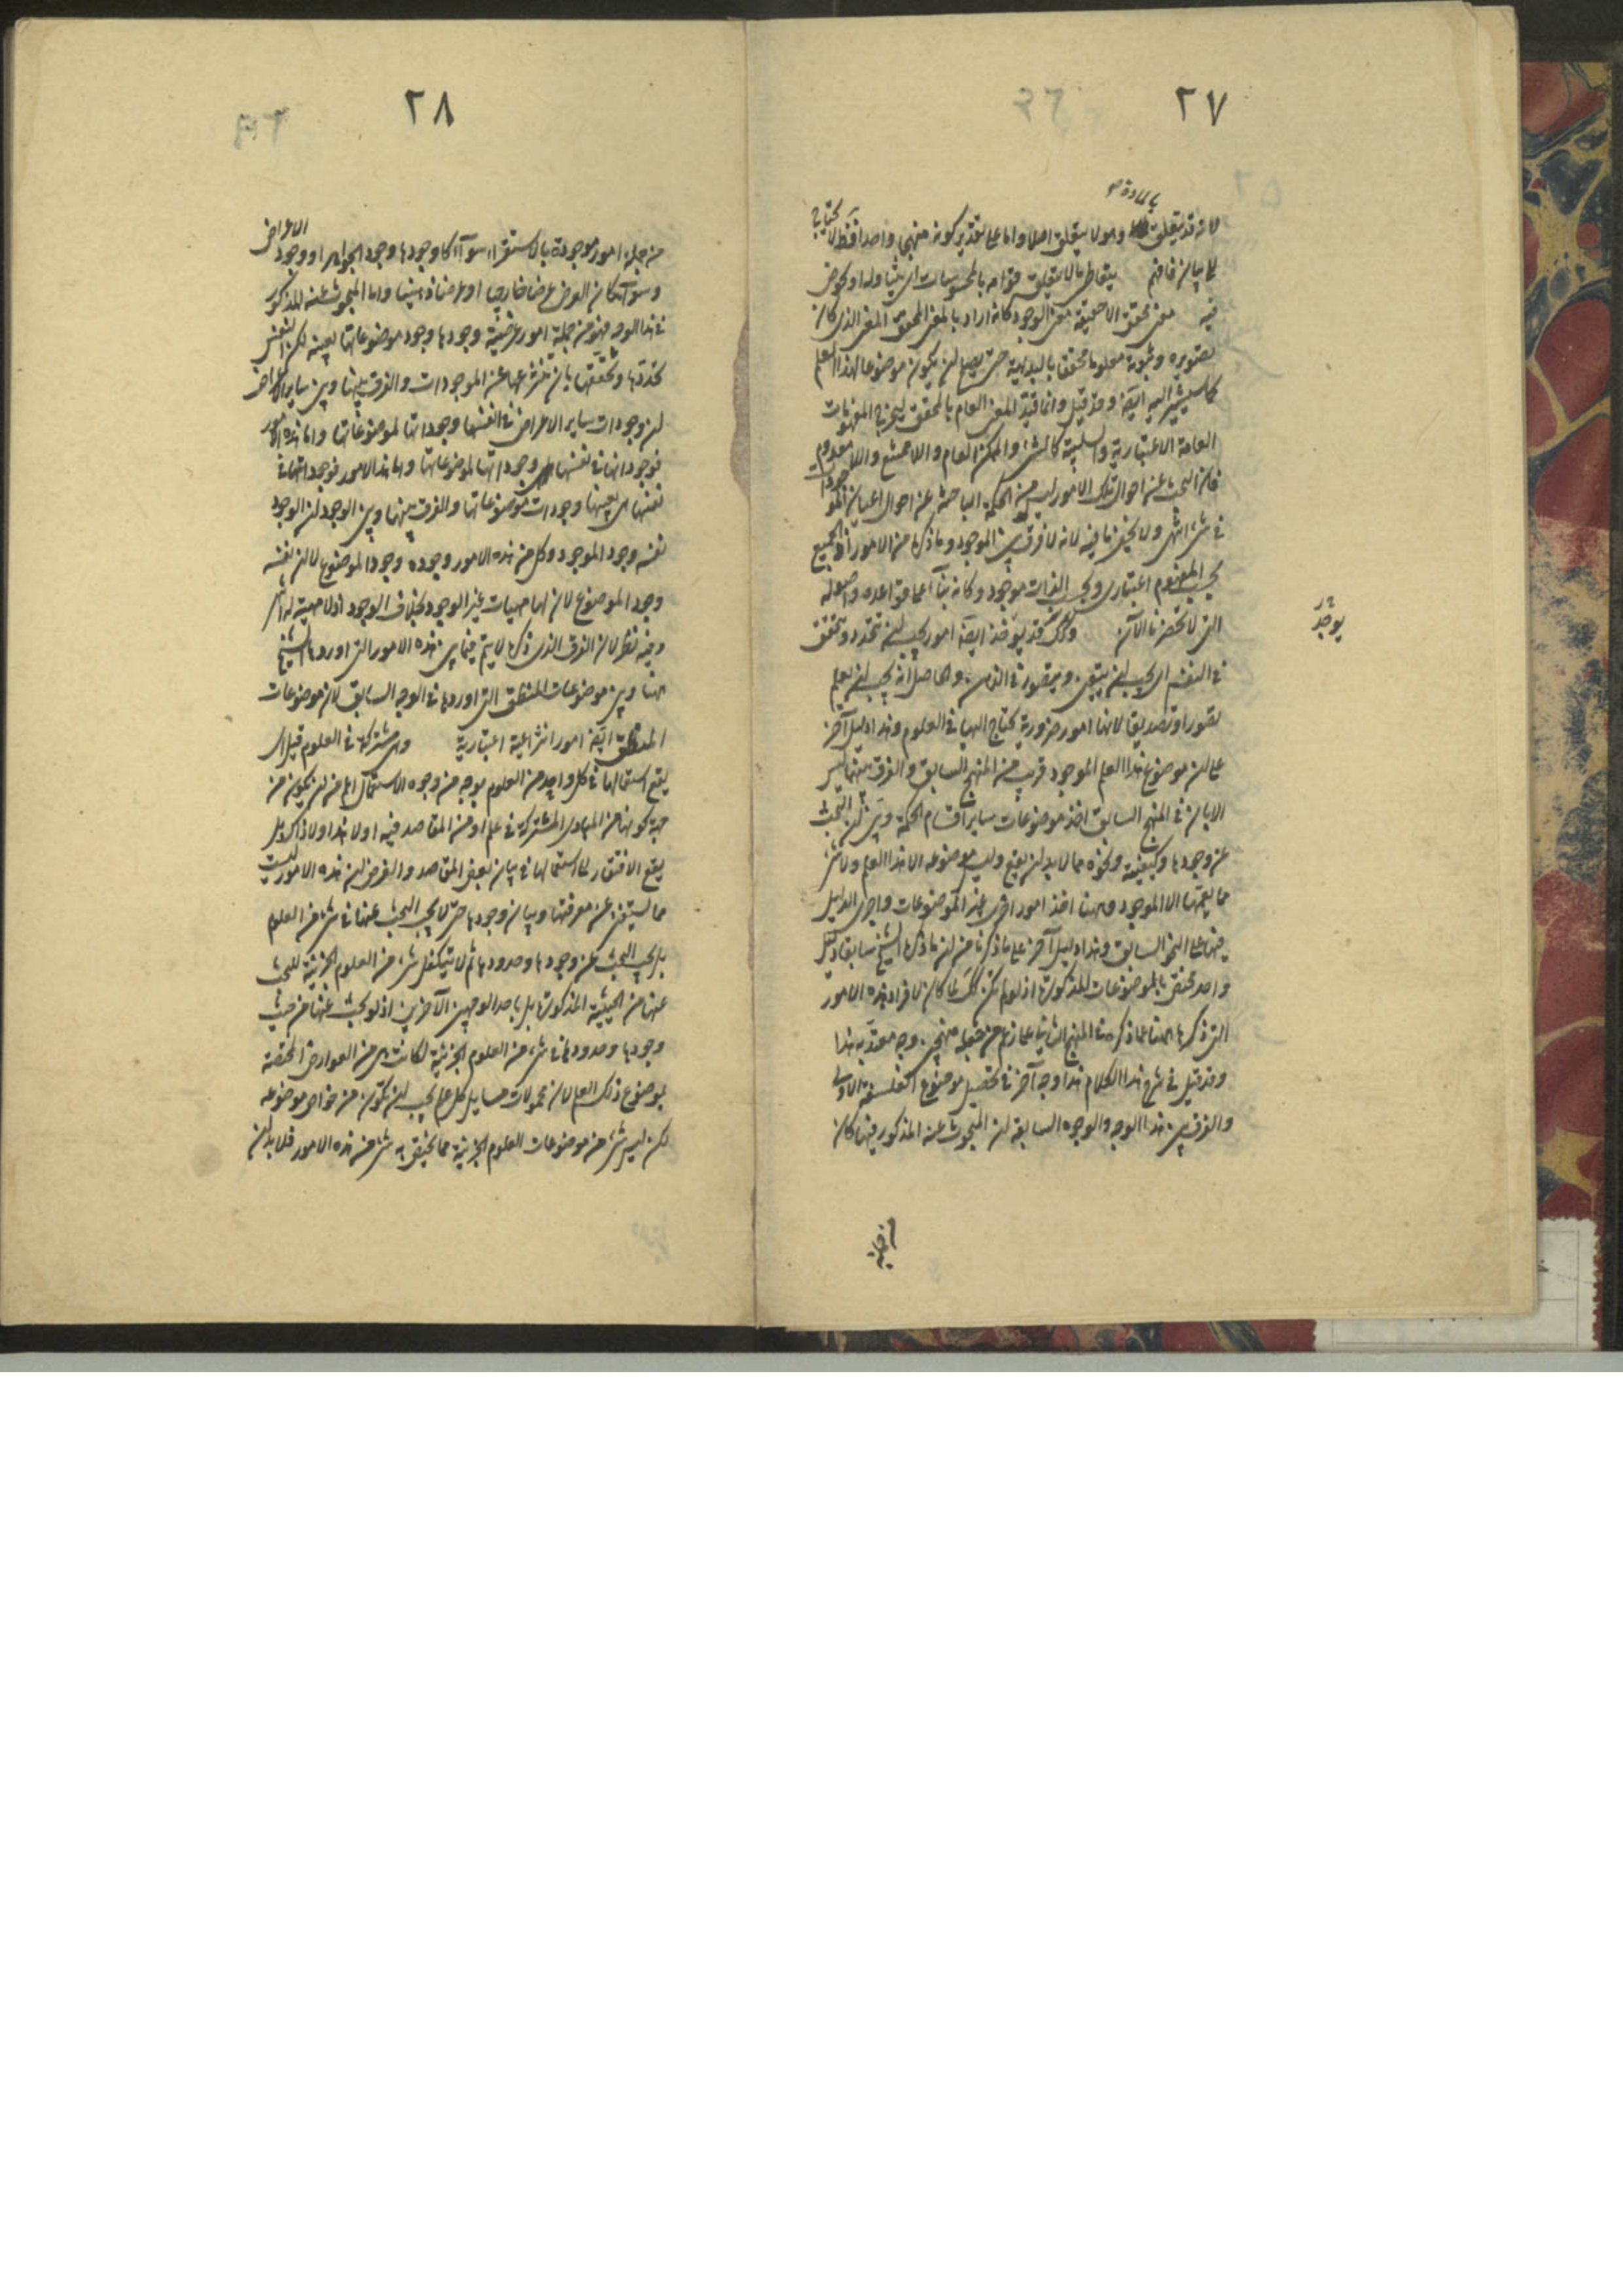 ٢٧
بالمادة
لانه قد يتعلق وهو لا يتعلق اصلا واما على تقدير كونه منهجا واحدا فقط لا يحتاج
الى بيان فافهم يتعاطى ما لا يتعلق قوامه بالمحسوسات اى يتناوله او يخوض
فيه معنى محقق الا حقيقة معنى الوجود كانه اراد بالمعنى المحقق المعنى الذى كان
تصويره وثبوته معلوما محققا بالبديهة حتى يصلح لان يكون موضوعا لهذا العلم
كما سيشير اليه ايضا وقد قيل وانما قيد المعنى العام بالمحقق ليخرج المفهومات
العامة الاعتبارية والسلبية كالشئ والممكن العام واللاممتنع واللامعدوم
فان البحث عن احوال تلك الامور ليس من الحكمة الباحثة عن احوال اعيان الموجودات
فى شئ انتهى ولا يخفى ما فيه لانه لا فرق بين الموجود وما ذكره من الامور اذ الجميع
بحسب المفهوم اعتبارى وبحسب الذات موجود وكانه بناء على قواعده واصوله
التى لا تحضرنا الآن وكذلك قد يوجد ايضا امور يجب ان تتحدد وتحقق
يوجد
فى النفس اى يجب ان يتبين ويتصور فى الذهن والحاصل انه يجب ان يعلم
تصورا وتصديقا لانها امور ضرورية يحتاج اليها فى العلوم وهذا دليل آخر
على ان موضوع هذا العلم الموجود قريب من المنهج السابق والفرق بينهما ليس
الا بان فى المنهج السابق اخذ موضوعات ساير اقسام الحكمة وبين ان البحث
عن وجودها وكيفيته ونحوه مما لا بد ان يقع وليس موضوعه الا هذا العلم ولا شئ
مما يعمها الا الموجود وههنا اخذ امور اخرى غير الموضوعات واجرى الدليل
فيها على النحو السابق وهذا دليل آخر على ما ذكرنا من ان ما ذكره الشيخ سابقا دليل
واحد مختص بالموضوعات المذكورة اذ لو لم تكن كذلك لما كان لافراد هذه الامور
التى ذكرها ههنا عما ذكره فى المنهج الثانى على ما زعم من جعله منهجين وجه معتد به هذا
وقد قيل فى شرح هذا الكلام هذا وجه آخر فى تحصيل موضوع الفلسفة الاولى
والفرق بين هذا الوجه والوجوه السابقة ان المبحوث عنه المذكور فيها كان
من جملة
٢٨
من جملة امور موجودة بالاستقراء سواء كان وجودها وجود الجواهر او وجود الاعراض
وسواء كان العرض عرضا خارجيا او عرضا ذهنيا واما المبحوث عنه المذكور
فى هذا الوجه فهو من جملة امور عرضية وجودها وجود موضوعاتها بعينه لكن النفس
تحددها وتحققها بان تنتزعها عن الموجودات والفرق بينها وبين ساير الاعراض
ان وجودات ساير الاعراض فى انفسها وجوداتها لموضوعاتها واما هذه الامور
فوجوداتها فى نفسها هى وجوداتها لموضوعاتها واما هذه الامور فوجوداتها فى
نفسها هى بعينها وجودات موضوعاتها والفرق بينها وبين الوجود ان الوجود
نفسه وجود الموجود وكل من هذه الامور وجوده وجود الموضوع لا ان نفسه
وجود الموضوع لان لها مهيات غير الوجود بخلاف الوجود اذ لا مهية له انتهى
وفيه نظر لان الفرق الذى ذكره لا يتم فيما بين هذه الامور التى اوردها الشيخ
ههنا وبين موضوعات المنطق التى اوردها فى الوجه السابق لان موضوعات
المنطق ايضا امور انتزاعية اعتبارية وهى مشتركة فى العلوم قيل اى
يقع استعمالها فى كل واحد من العلوم بوجه من وجوه الاستعمال اعم من ان يكون من
جهة كونها من المبادى المشتركة فى علم او من المقاصد فيه او لا هذا ولا ذاك بل
يقع الافتقار الى استعمالها فى بيان بعض المقاصد والغرض ان هذه الامور ليست
مما يستغنى عن معرفتها وبيان وجودها حتى لا يجب البحث عنها فى شئ من العلوم
بل يجب البحث عن وجودها وحدودها ثم لا يتكفل شئ من العلوم الجزئية للبحث
عنها من الحيثية المذكورة بل باحد الوجهين الآخرين اذ لو بحث عنها من حيث
وجودها وحدودها فى شئ من العلوم الجزئية لكانت هى من العوارض المختصة
بموضوع ذلك العلم لان محمولات مسايل كل علم يجب ان تكون من خواص موضوعه
لكن ليس شئ من موضوعات العلوم الجزئية مما يختص به شئ من هذه الامور فلا بد ان